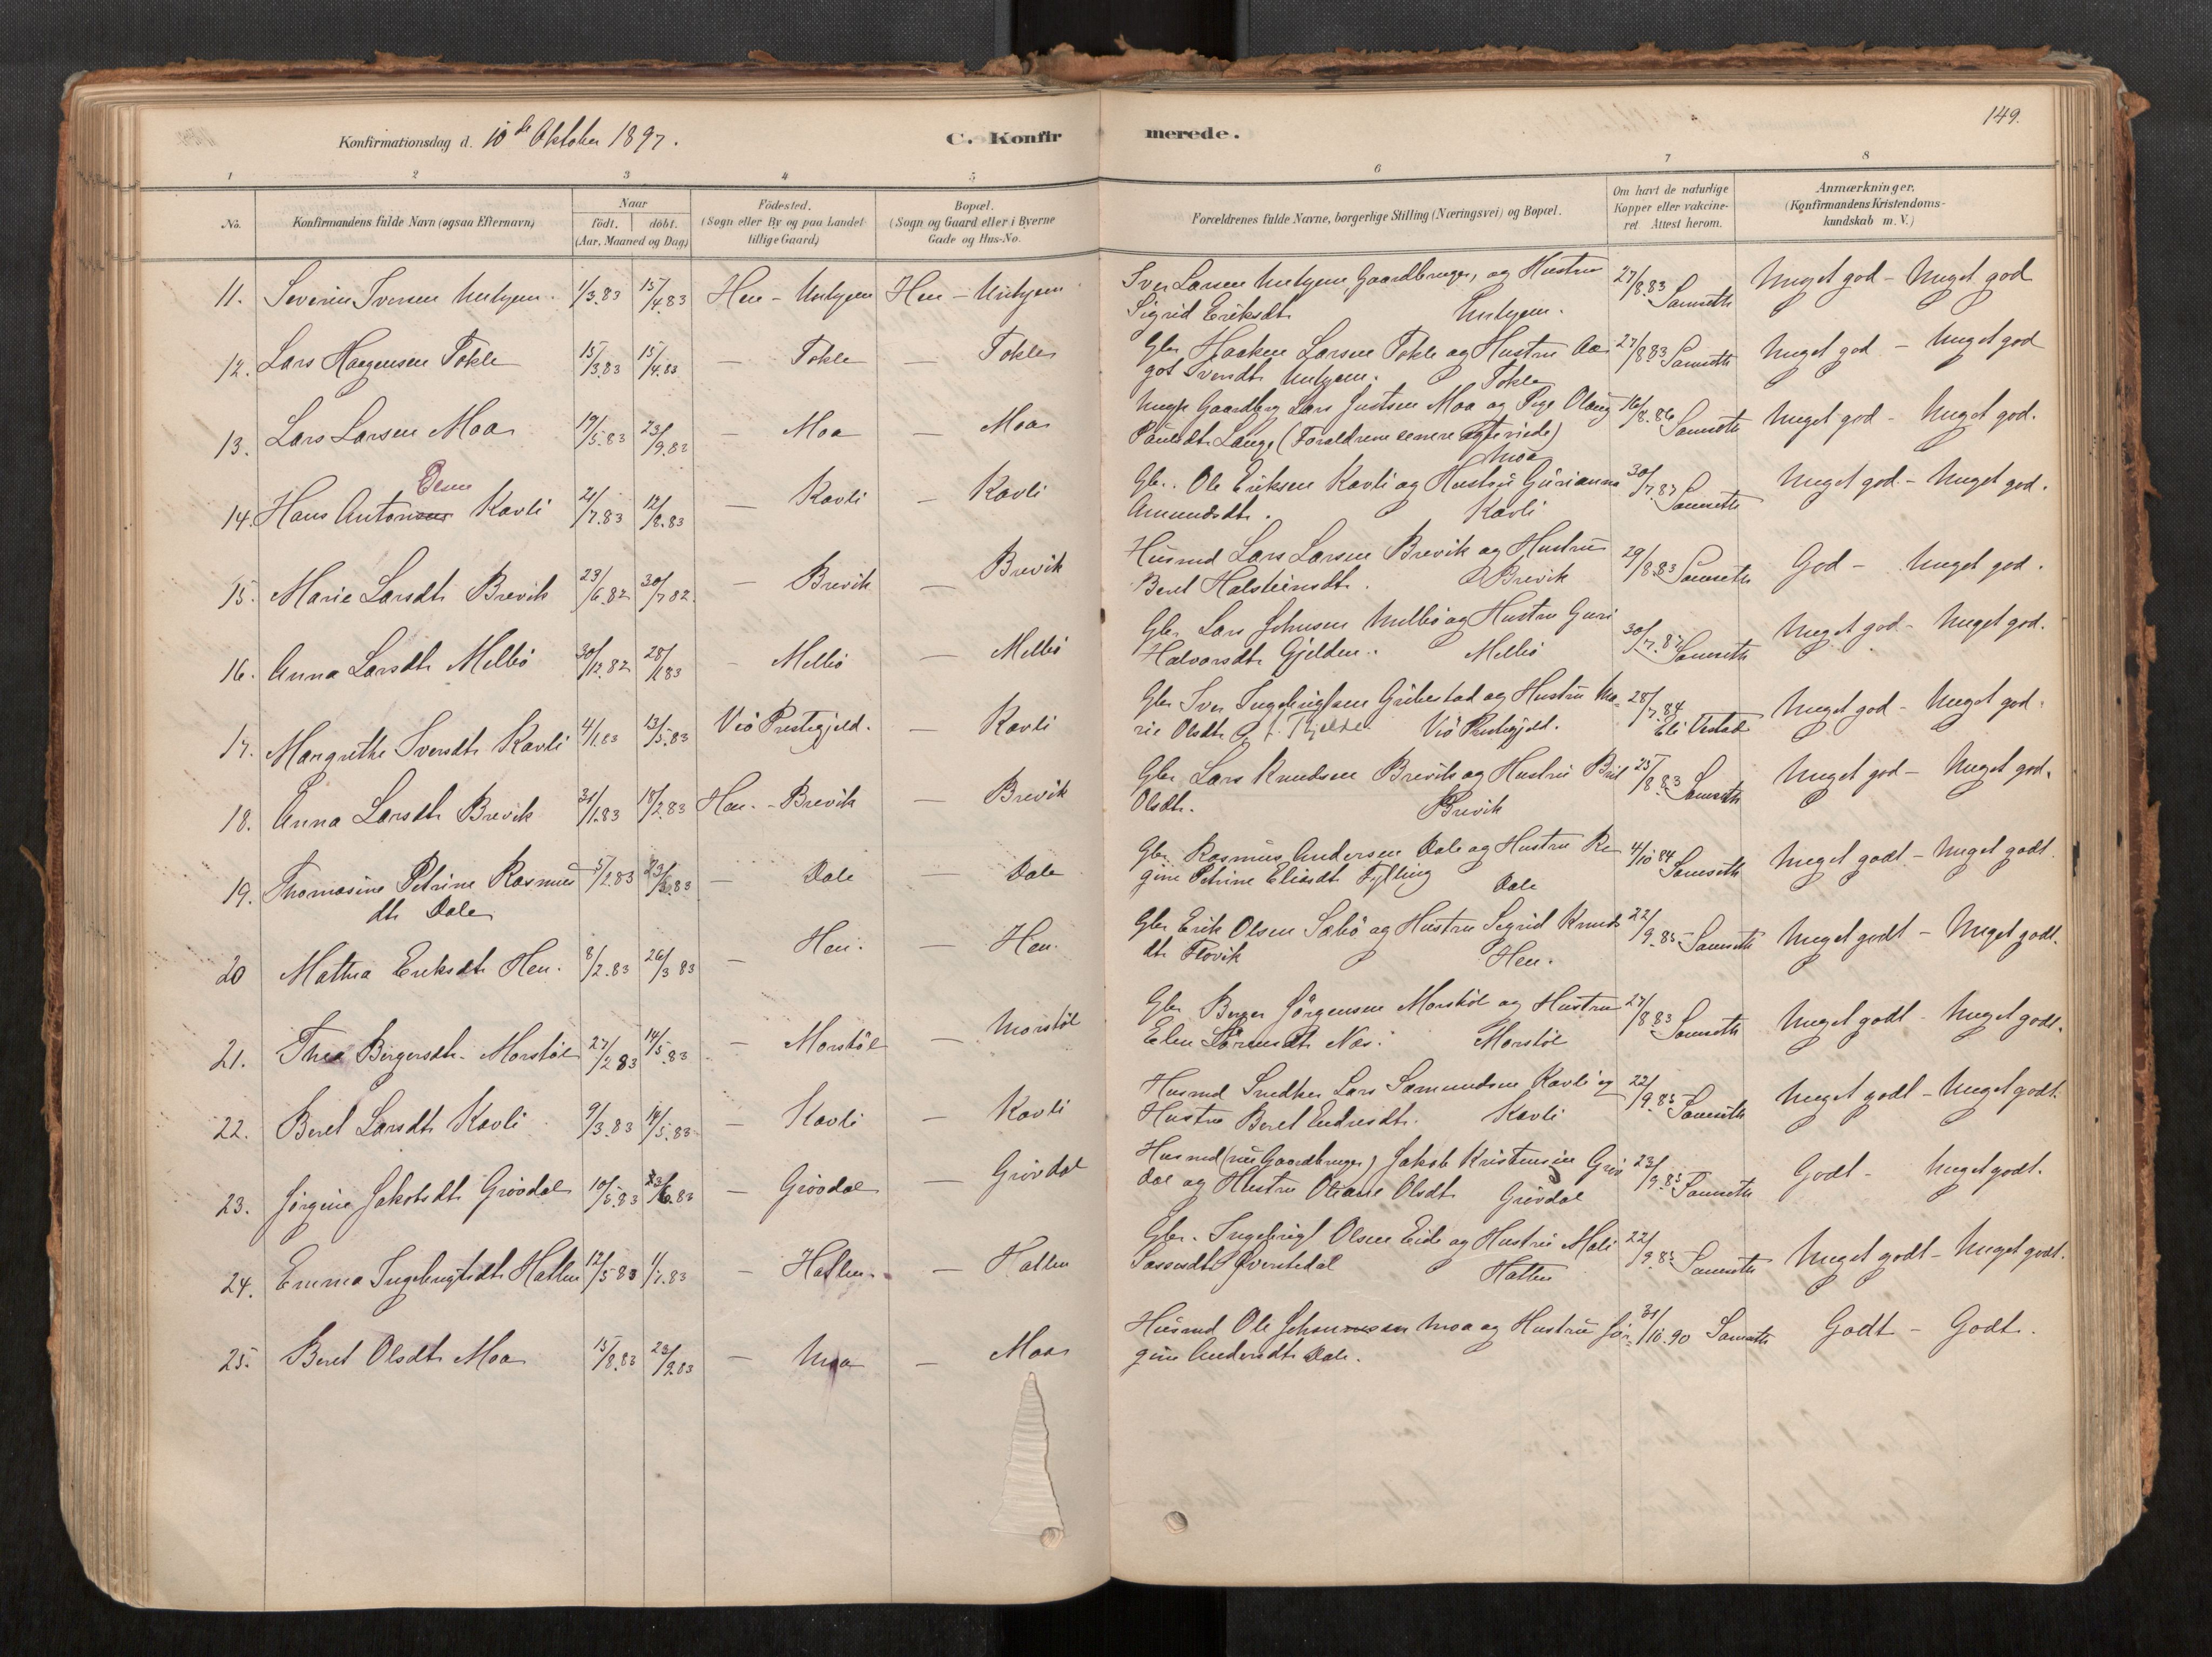 149.
Konfirmationsdag d. 10de Oktober 1897.
C. Konfirmerede.
1 2 3 4 5 6 7 8
No. Konfirmandens fulde Navn (ogsaa Efternavn) Naar födt. döbt. (Aar, Maaned og Dag) Födested. (Sogn eller By og paa Landet tillige Gaard) Bopæl. (Sogn og Gaard eller i Byerne Gade og Hus-No. Forældrenes fulde Navne, borgerlige Stilling (Næringsvei) og Bopæl. Om havt de naturlige Kopper eller vakcineret Attest herom. Anmærkninger. (Konfirmandens Kristendomskundskab m. V.)
11. Severin Iversen 1/3.83 15/4.83 Hen - Hen - Iver Larsen Gaardbruger, og Hustru 27/8.83 Meget god - Meget god
Sigrid Eriksdt.
12. Lars Tokle 15/3.83 15/4.83 — Tokle — Tokle Gbr Haaken Larsen Tokle og Hustru Aa 27/8 83 Meget god - Meget god
got Tokle
13. Lars Larsen Moa 19/5.83 23/9.83 — Moa — Moa Gaardbrg Lars Moa og Pige 16/8.86 Meget god - Meget god.
(Foraldrene senere Moa
Olsen
14. Hans Anton Kavli 21/7.83 12/8.83 — Kavli — Kavli Gbr. Ole Eriksen Kavli og Hustru Gurianna 30/7.87 Meget god - Meget god.
Amundsdt. Kavli
15. Marie Larsdt. Brevik 23/6.82 30/7 82. — Brevik — Brevik Husmd Lars Larsen Brevik og Hustru 29/8.83 God - Meget god.
Beret Halsteinsdt. Brevik
16. Anna Larsdt. Melbö 30/12.82 28/1 83 — Melbö — Melbö Gbr Lars Johnsen Melbö og Hustru Guri 30/7.87 Meget god - Meget god.
Halvorsdt. Gjelden. Melbö
17. Margrethe Iversdt. Kavli 4/1.83 13/5.83 Vö Prestegjeld. — Kavli Gbr Iver og Hustru Ma- 28/7.84 Meget god - Meget god.
rie Olsdt. Vö Prestegjeld. Eli Vestad
18. Anna Larsdt. Brevik 31/1.83 18/2.83 Hen. - Brevik — Brevik Gbr Lars Knudsen Brevik og Hustru Brit 25/8.83 Meget god - Meget god.
Olsdt. Brevik
19. Thomasine Petrine Rasmus 5/2.83 23/3.83 — Dale — Dale Gbr Rasmus Andersen Dale og Hustru Re 4/10 84 Meget godt - Meget godt.
dt. Dale gine Petrine Eliasdt. Fylling Dale
20 Mathea Eriksdt. Hen. 8/2.83 26/3 83 — Hen. — Hen. Gbr Erik Olsen Sæbö og Hustru Sigrid Knuds 22/9.85 Meget godt - Meget godt.
dt. Flovik Hen.
21. Thea Bergersdt. Morstöl 27/2 83 14/5.83 — Morstöl — Morstöl Gbr Berger Jörgensen Morstöl og Hustru 27/8 83 Meget godt - Meget godt.
Elen Næs. Morstöl
22. Beret Larsdt. Kavli 9/3.83 14/5.83 — Kavli — Kavli Husmd Snedker Lars Kavli og 22/9.85 Meget godt - Meget godt.
Hustru Beret Endresdt. Kavli
23. Jörgine Jakobsdt. Grövdal 10/5.83 — Grövdal — Grövdal Husmd (nu Gaardbruger) Jakob Kristensen Gröv 23/9.85 Godt - Meget godt.
dal og Hustru Oliane Olsdt. Grövdal
24. Emma Ingebrigtsdt. Hatlen 12/5 83 1/7.83 — Hatlen. — Hatlen Gbr. Ingebrigt Olsen Eide og Hustru Mali 22/9.85 Meget godt - Meget godt.
Hatlen
25. Beret Olsdt. Moa 15/8.83 23/9.83 — Moa — Moa Husmd Ole Moa og Hustru Jör- 31/10.90 Godt - Godt.
gine Andersdt. Dale.